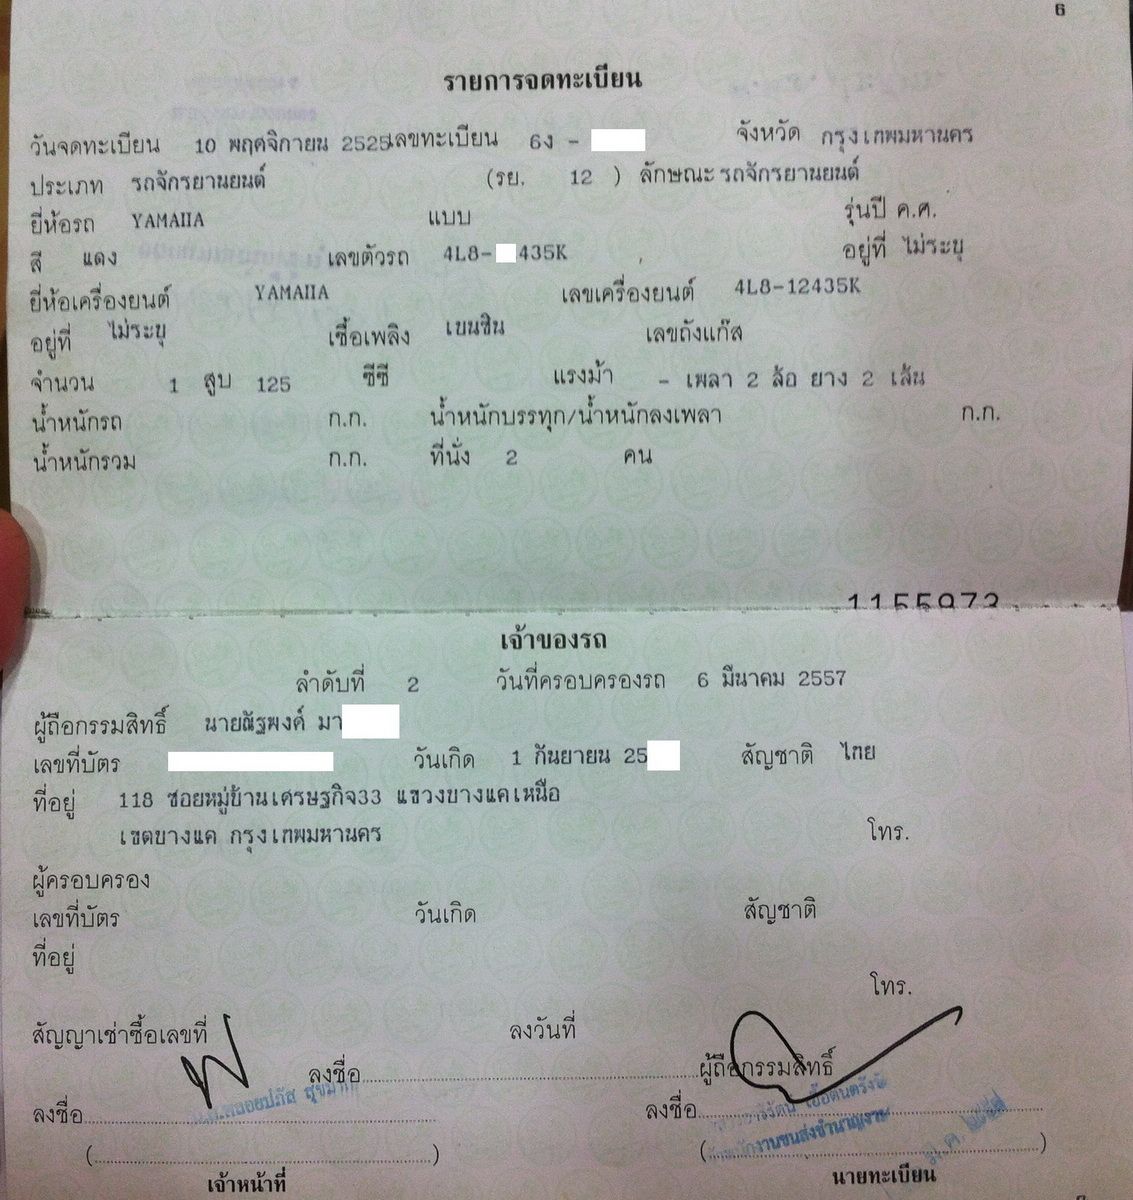 6
รายการจดทะเบียน
วันจดทะเบียน 10 พฤศจิกายน 2525 เลขทะเบียน 6ง - จังหวัด กรุงเทพมหานคร
ประเภท รถจักรยานยนต์ (รย. 12 ) ลักษณะ รถจักรยานยนต์
ยี่ห้อรถ YAMAHA แบบ รุ่นปี ค.ศ.
สี แดง เลขตัวรถ 4L8- 435K อยู่ที่ ไม่ระบุ
ยี่ห้อเครื่องยนต์ YAMAHA เลขเครื่องยนต์ 4L8-12435K
อยู่ที่ ไม่ระบุ เชื้อเพลิง เบนซิน เลขถังแก๊ส
จำนวน 1 สูบ 125 ซีซี แรงม้า - เพลา 2 ล้อ ยาง 2 เส้น
น้ำหนักรถ ก.ก. น้ำหนักบรรทุก/น้ำหนักลงเพลา ก.ก.
น้ำหนักรวม ก.ก. ที่นั่ง 2 คน
1155973
เจ้าของรถ
ลำดับที่ 2 วันที่ครอบครองรถ 6 มีนาคม 2557
ผู้ถือกรรมสิทธิ์ นายณัฐพงค์ มา
เลขที่บัตร วันเกิด 1 กันยายน 25 สัญชาติ ไทย
ที่อยู่ 118 ซอยหมู่บ้านเศรษฐกิจ33 แขวงบางแคเหนือ
เขตบางแค กรุงเทพมหานคร โทร.
ผู้ครอบครอง
เลขที่บัตร วันเกิด สัญชาติ
ที่อยู่
โทร.
สัญญาเช่าซื้อเลขที่ ลงวันที่
ลงชื่อ ผู้ถือกรรมสิทธิ์
ลงชื่อ ลงชื่อ
พนักงานขนส่งชำนาญงาน
(ㅤ) (ㅤ)
เจ้าหน้าที่ นายทะเบียน